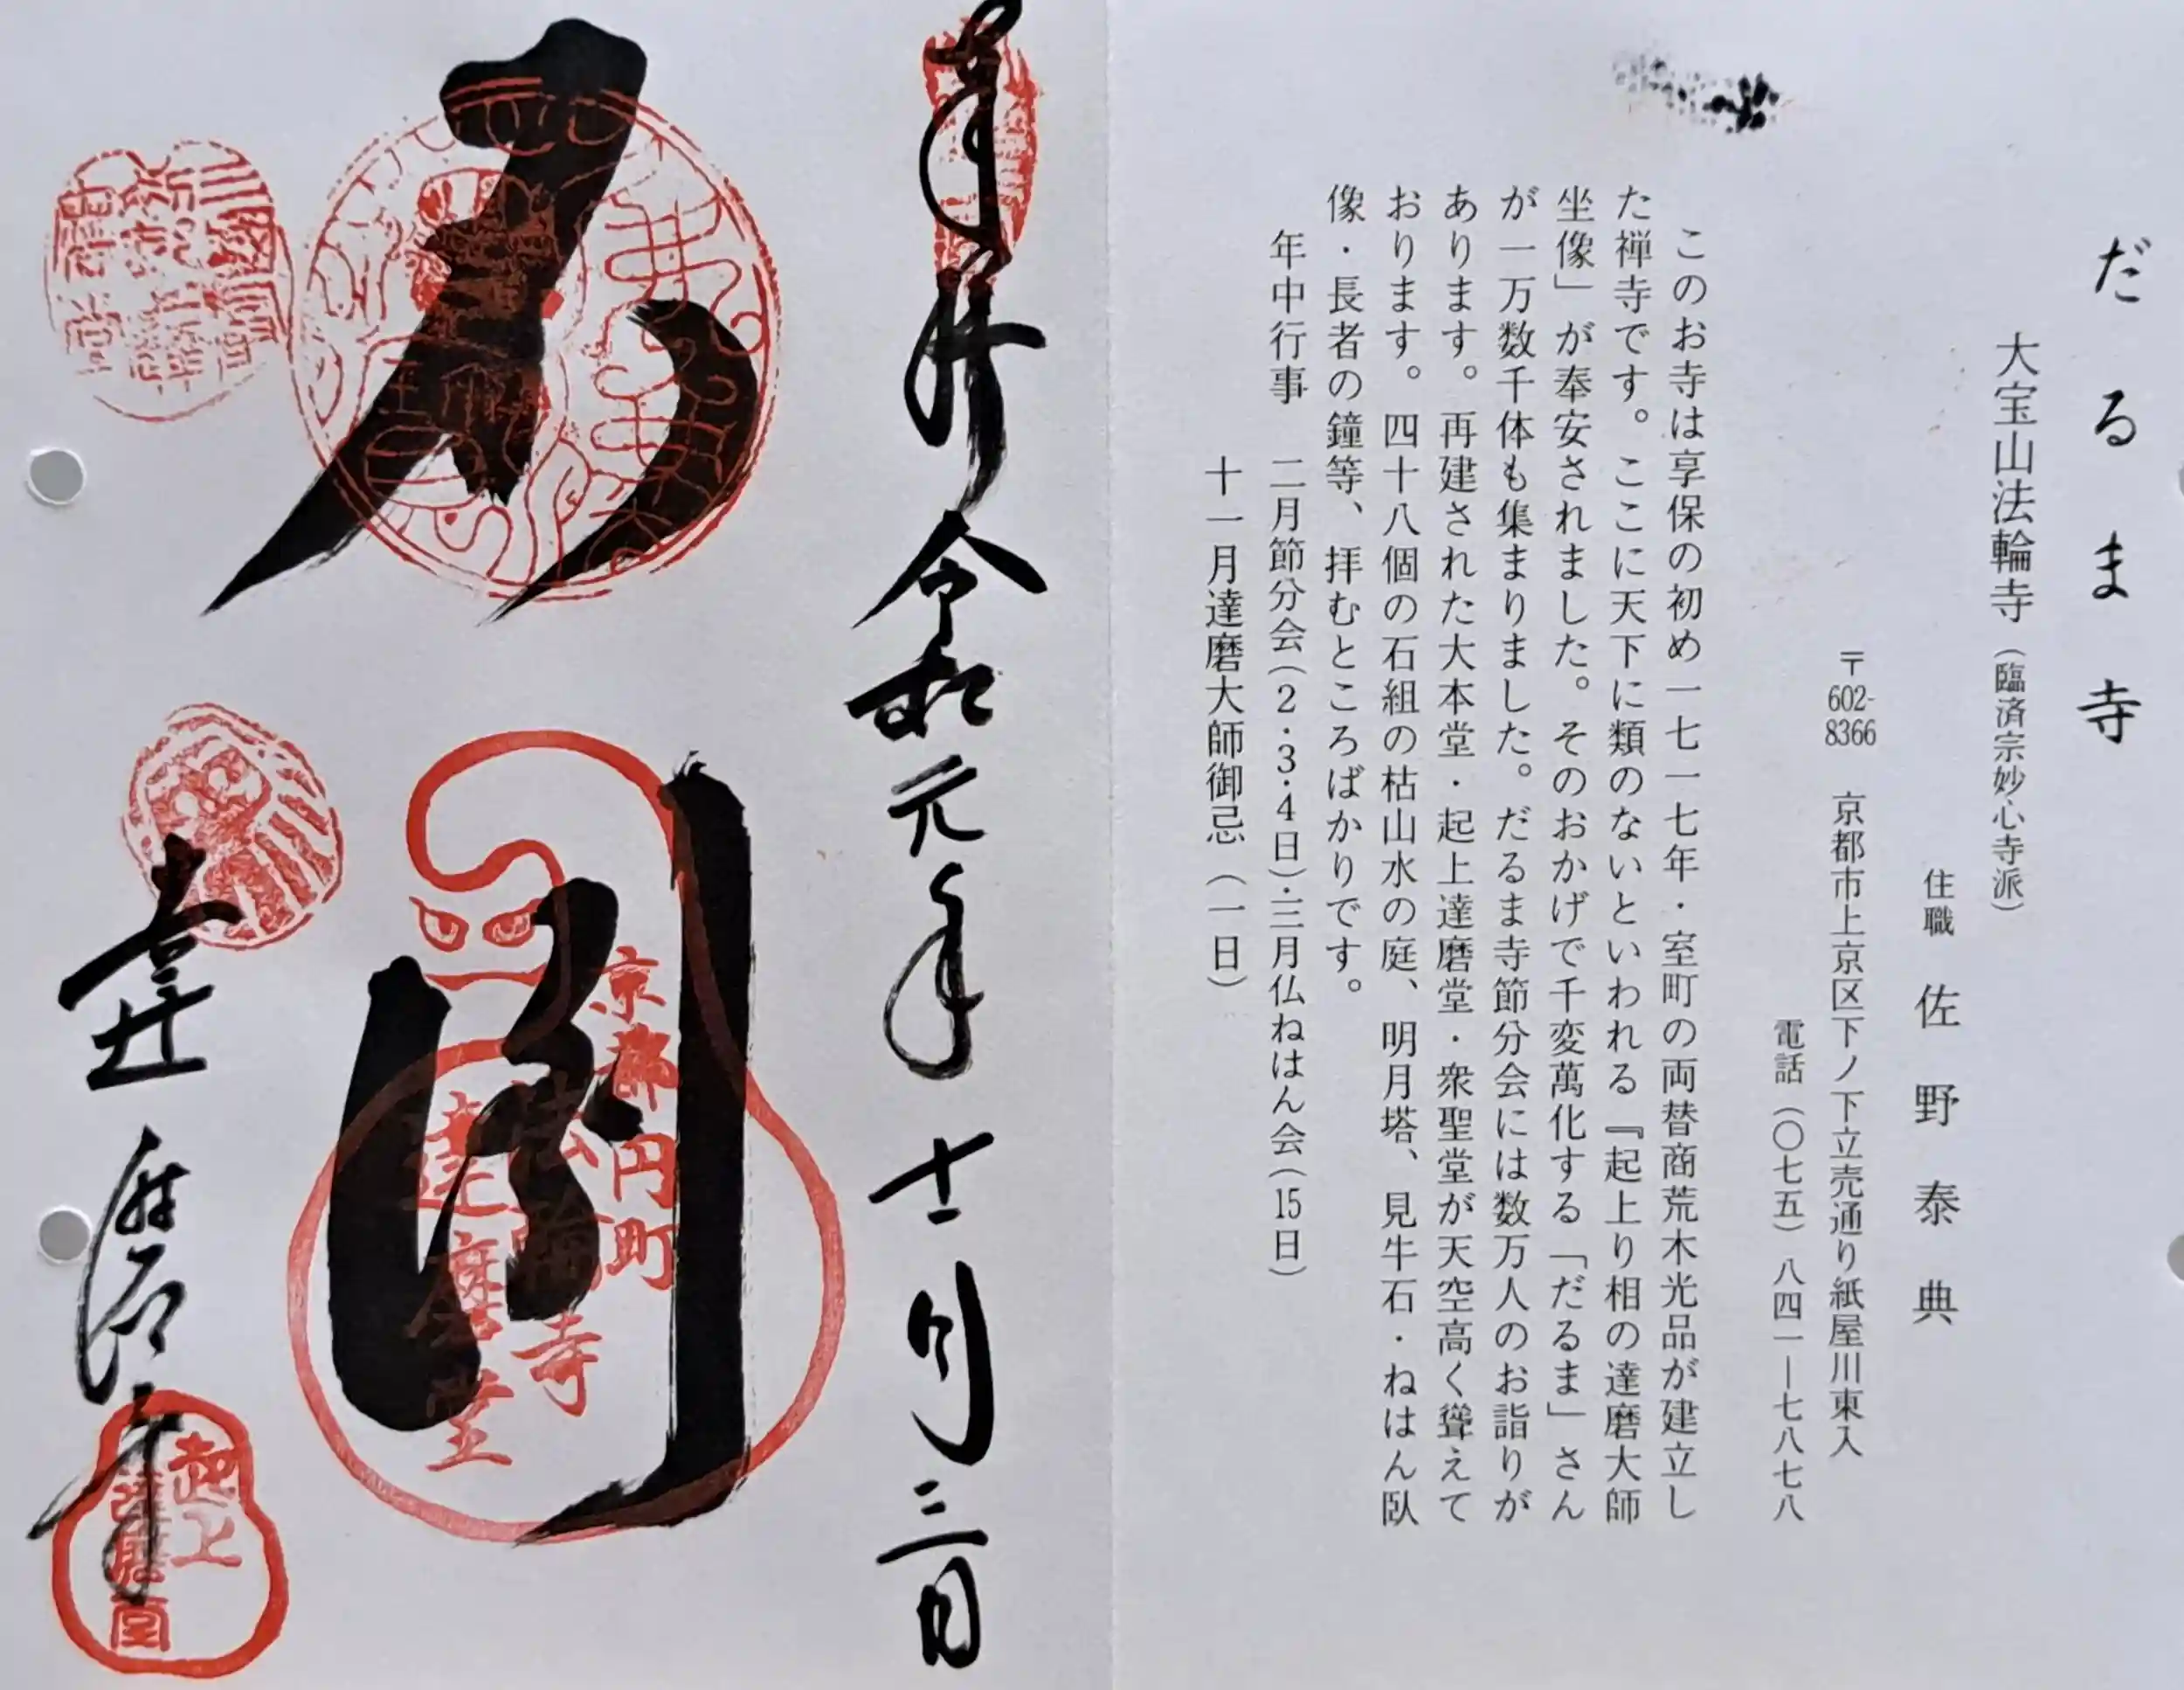 だるま寺
大宝山法輪寺（臨済宗妙心寺派）
住職 佐野泰典
〒602-8366 京都市上京区下ノ下立売通り紙屋川東入
電話（〇七五）八四一―七八七八
このお寺は享保の初め一七一七年・室町の両替商荒木光品が建立し
た禅寺です。ここに天下に類のないといわれる『起上り相の達磨大師
坐像」が奉安されました。そのおかげで千変萬化する「だるま」さん
が一万数千体も集まりました。だるま寺節分会には数万人のお詣りが
あります。再建された大本堂・起上達磨堂・衆聖堂が天空高く聳えて
おります。四十八個の石組の枯山水の庭、明月塔、見牛石・ねはん臥
像・長者の鐘等、拝むところばかりです。
年中行事 二月節分会（2・3・4日）・三月仏ねはん会（15日）
十一月達磨大師御忌（一日）
奉拝 令和元年 十一月 三日
京都円町
法輪寺
達磨堂
達磨寺
起上
達磨堂